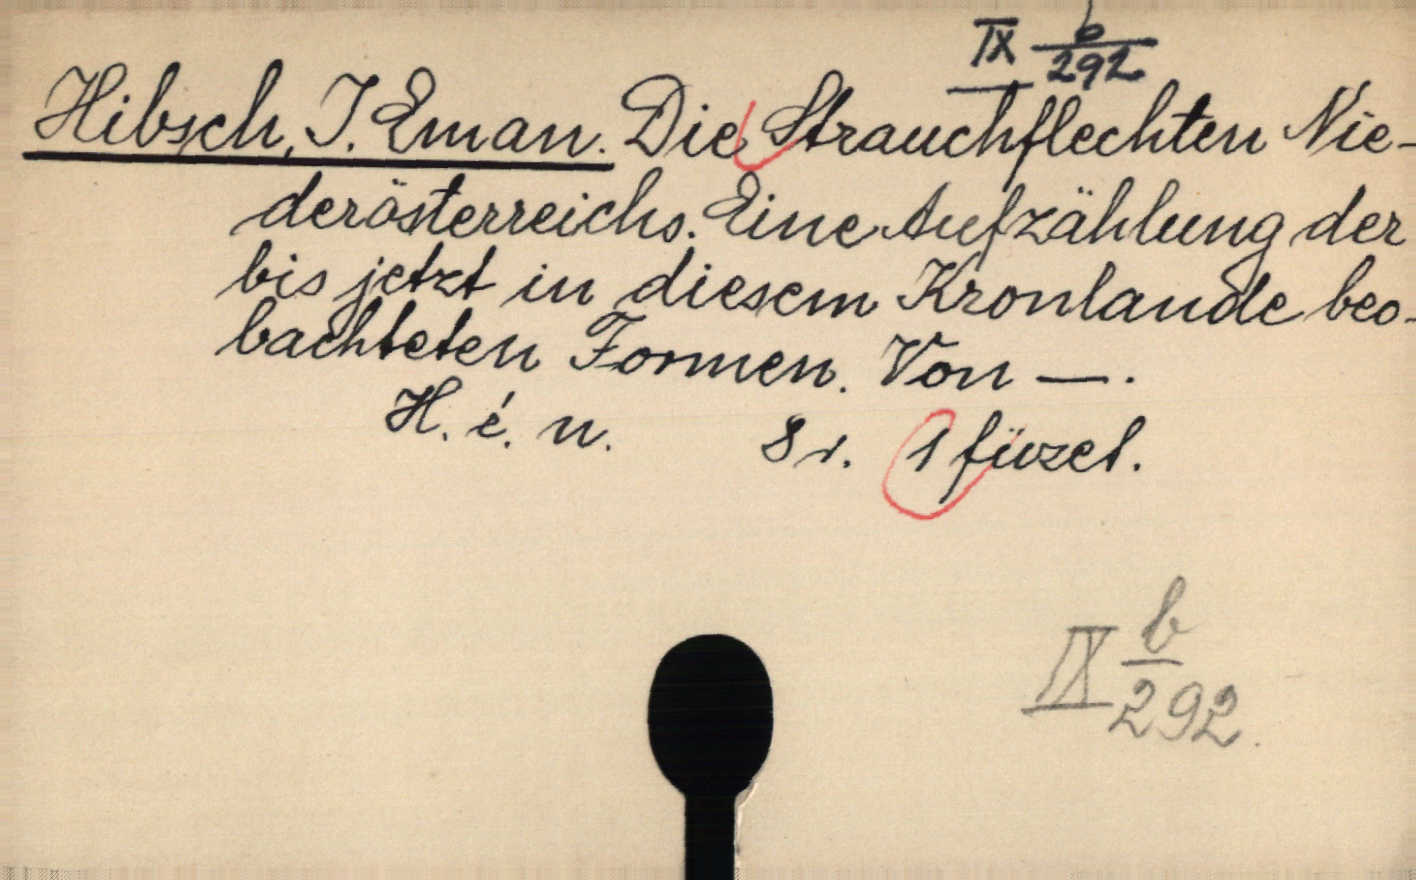 IX b/292
Hibsch, J. Eman. Die Strauchflechten Nie-
derösterreichs. Eine Aufzählung der
bis jetzt in diesem Kronlande beo-
bachteten Formen. Von —.
H. é. n. 8 r. 1 füzet.
IX b/292.